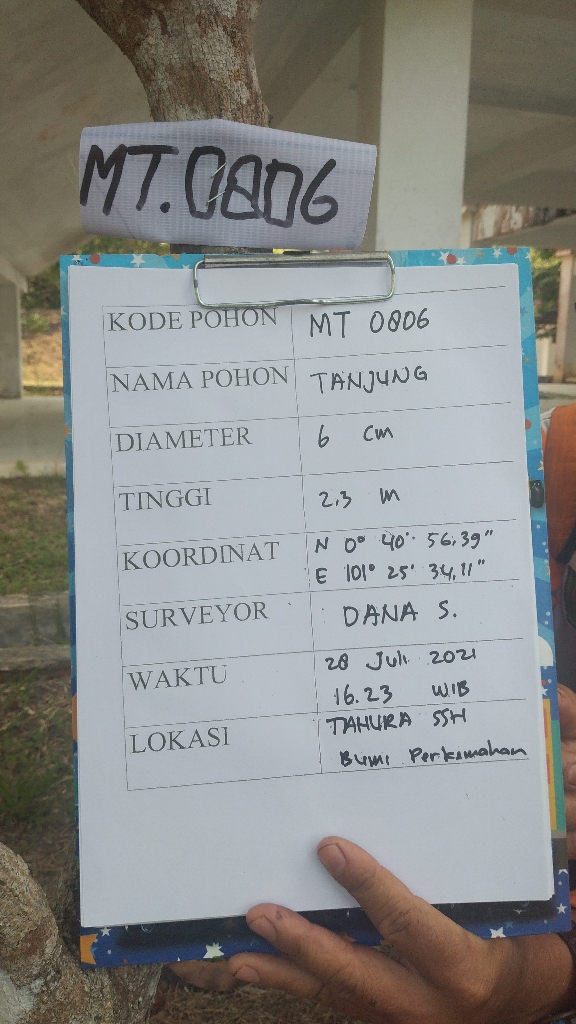 MT.0806
KODE POHON MT 0806
NAMA POHON TANJUNG
DIAMETER 6 cm
TINGGI 2,3 m
KOORDINAT N 0° 40' 56,39"
E 101° 25' 34,11"
SURVEYOR DANA S.
WAKTU 28 Juli 2021
16.23 WIB
LOKASI TAHURA SSH
Bumi Perkemahan